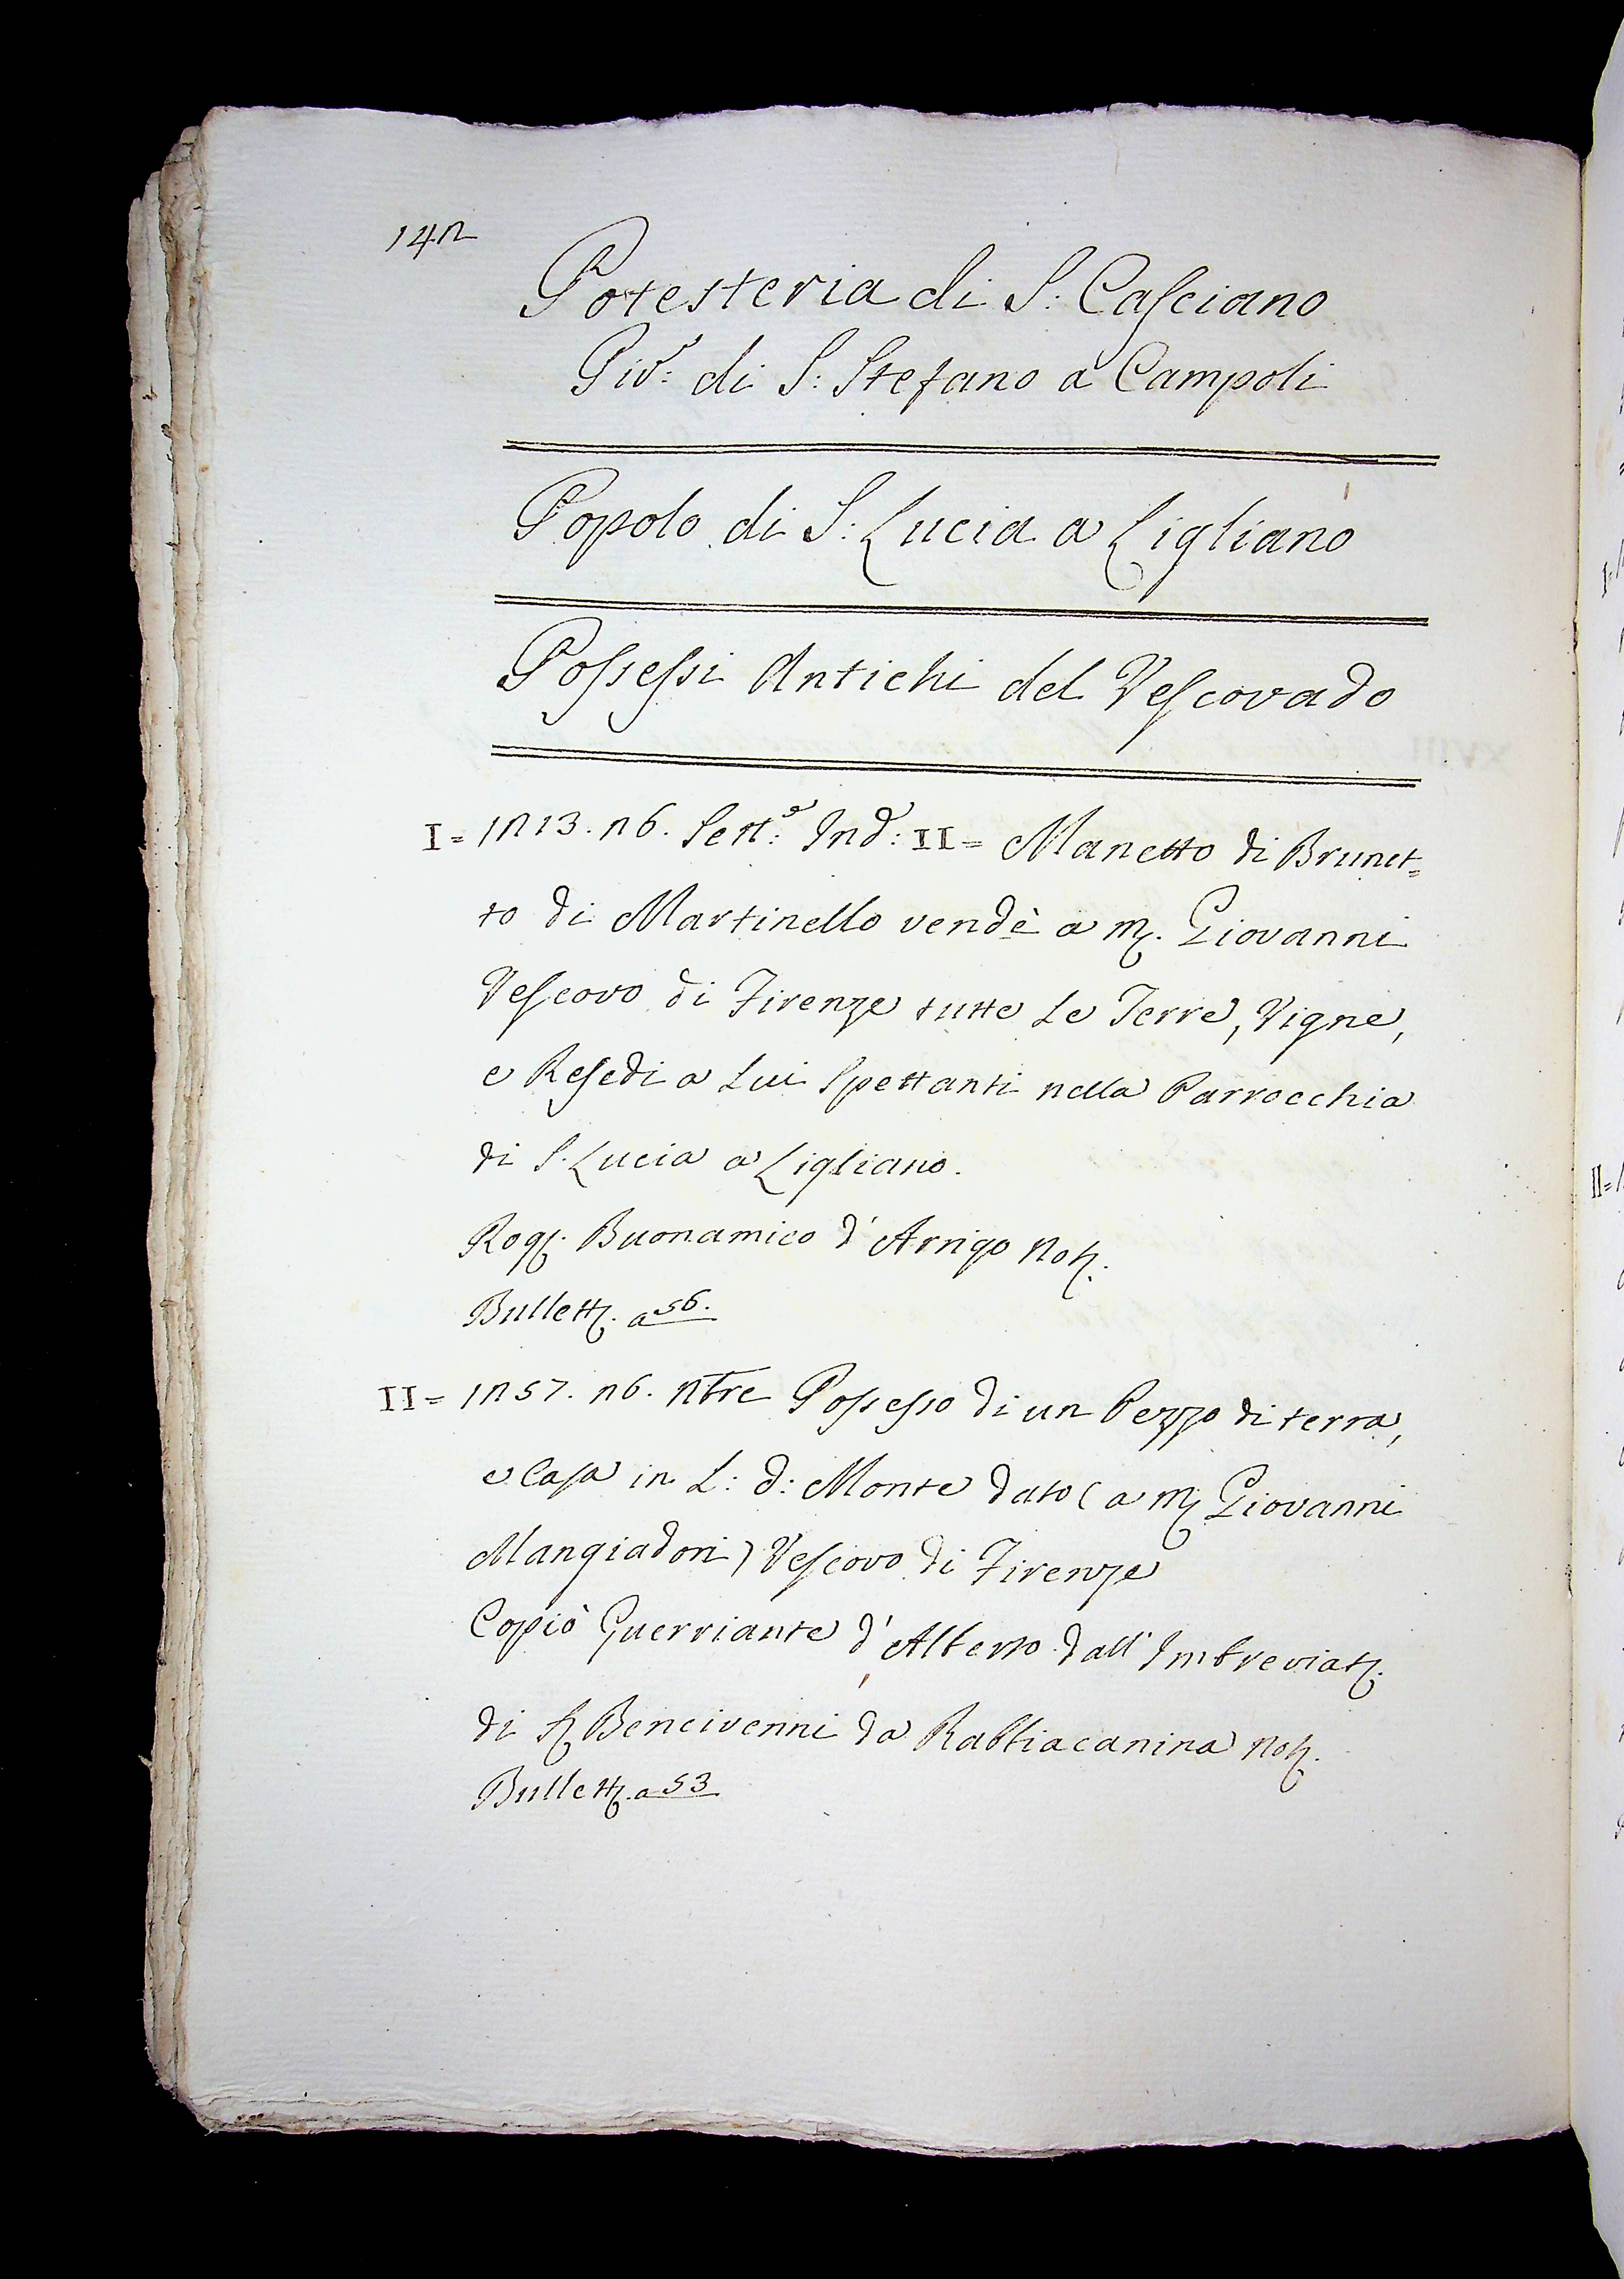 142
Potesteria di S: Casciano
Piv.e di S: Stefano a Campoli
Popolo di S: Lucia a Ligliano
Possessi Antichi del Vescovado
I= 1213. 26. Sett.e Ind: II= Manetto di Brunet=
to di Martinello vendè a m. Giovanni
Vescovo di Firenze tutte Le Terre, Vigne,
e Resedi a Lui Spettanti nella Parrocchia
di S. Lucia a Ligliano.
Rog. Buonamico d'Arrigo Not.
Bullett. a 56.
II= 1257. 26. Nbre Possesso di un Pezzo di terra,
e Casa in L: d: Monte dato (a m Giovanni
Mangiadori) Vescovo di Firenze
Copiò Guerriante d'Alberto dall'Imbreviat.
di S Bencivenni da Rabbiacanina Not.
Bullett. a 53